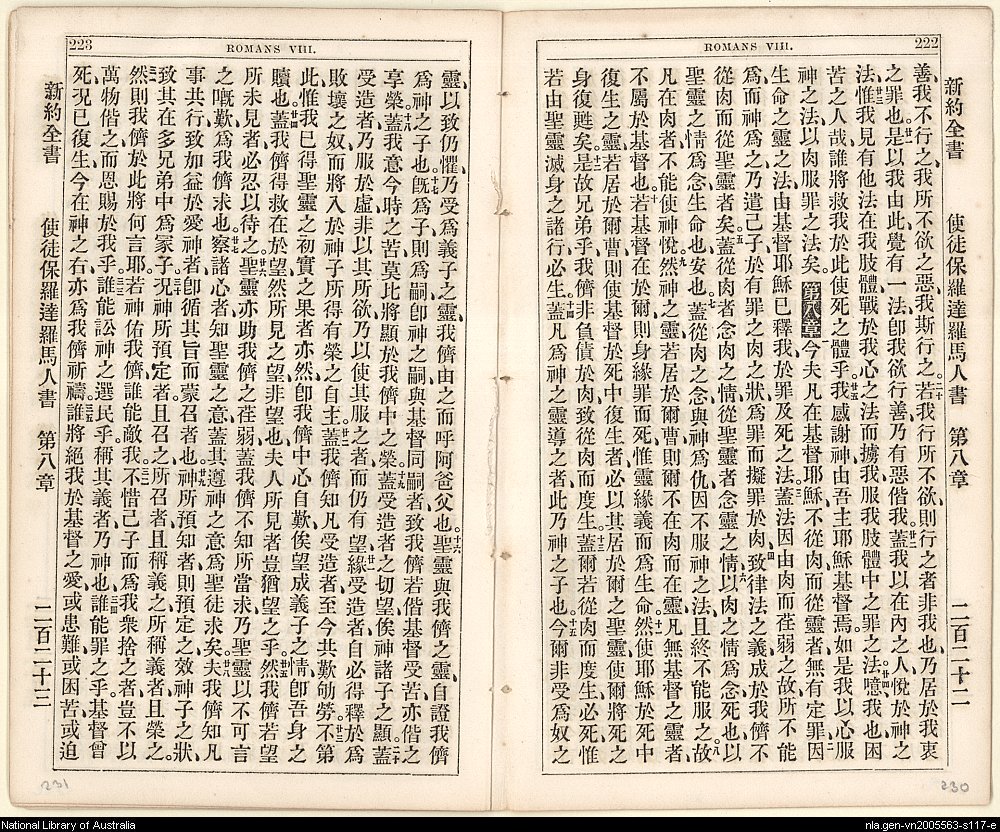 222
ROMANS VIII.
新約全書 使徒保羅達羅馬人書 第八章 二百二十二
善、我不行之、我所不欲之惡、我斯行之。二十若我行所不欲、則行之者非我也、乃居於我衷
之罪也。廿一是以我由此覺有一法、卽我欲行善、乃有惡偕我。廿二蓋我以在內之人、悅於神之
法、廿三惟我見有他法在我肢體、戰於我心之法、而擄我服我肢體中之罪之法。廿四噫我也困
苦之人哉、誰將救我於此使死之體乎。廿五我感謝神、由吾主耶穌基督焉、如是我以心服
神之法、以肉服罪之法矣。第八章 今夫凡在基督耶穌、不從肉而從靈者、無有定罪、二因
生命之靈之法、由基督耶穌、已釋我於罪及死之法。三蓋法因由肉而荏弱之故、所不能
爲、而神爲之、乃遣己子、於有罪之肉之狀、爲罪而擬罪於肉、四致律法之義成於我儕不
從肉而從聖靈者矣。五蓋從肉者念肉之情、從聖靈者念靈之情、六以肉之情爲念、死也、以
聖靈之情爲念、生命也、安也。七蓋從肉之念、與神爲仇、因不服神之法、且終不能服之、八故
凡在肉者、不能使神悅。九然神之靈若居於爾曹、則爾不在肉而在靈、凡無基督之靈者、
不屬於基督也。十若基督在於爾、則身緣罪而死、惟靈緣義而爲生。十一然使耶穌於死中
復生之靈、若居於爾曹、則使基督於死中復生者、必以其居於爾之聖靈、使爾將死之
身復甦矣。十二是故兄弟乎、我儕非負債於肉、致從肉而度生。十三蓋爾若從肉而度生、必死、惟
若由聖靈滅身之諸行、必生。十四蓋凡爲神之靈導之者、此乃神之子也。十五今爾非受爲奴之
230
223
ROMANS VIII.
靈、以致仍懼、乃受爲義子之靈、我儕由之而呼阿爸父也。十六聖靈與我儕之靈、自證我儕
爲神之子也。十七旣爲子、則爲嗣、卽神之嗣、與基督同嗣者、致我儕若偕基督受苦、亦偕之
享榮。十八蓋我意今時之苦、莫比將顯於我儕中之榮。十九蓋受造者之切望、俟神諸子之顯。二十蓋
受造者乃服於虛、非以其所欲、乃以使其服之者、而仍有望、廿一緣受造者自必得釋於爲
敗壞之奴、而將入於神子所得有榮之自主。廿二蓋我儕知凡受造者、至今共歎劬勞、廿三不第
此、惟我已得聖靈之初實之果者亦然、卽我儕中心自歎、俟望成義子之情、卽吾身之
贖也。廿四蓋我儕得救在於望、然所見之望非望也、夫人所見者、豈猶望之乎。廿五然我儕若望
所未見者、必忍以待之。廿六聖靈亦助我儕之荏弱、蓋我儕不知所當求、乃聖靈以不可言
之嘅歎、爲我儕求也。廿七察諸心者、知聖靈之意、蓋其遵神之意、爲聖徒求矣。廿八夫我儕知凡
事共行、致加益於愛神者、卽循其旨而蒙召者也。廿九神所預知者、則預定之效神子之狀、
致其在多兄弟中爲冢子。三十況神所預定者、且召之、所召者、且稱義之、所稱義者、且榮之。
三一然則我儕於此將何言耶、若神佑我儕、誰能敵我。三二不惜己子、而爲我衆捨之者、豈不以
萬物偕之而恩賜於我乎。三三誰能訟神之選民乎、稱其義者乃神也。三四誰能罪之乎、基督曾
死、況已復生、今在神之右、亦爲我儕祈禱。三五誰將絕我於基督之愛、或患難、或困苦、或迫
新約全書 使徒保羅達羅馬人書 第八章 二百二十三
231
National Library of Australia
nla.gen-vn2005563-s117-e